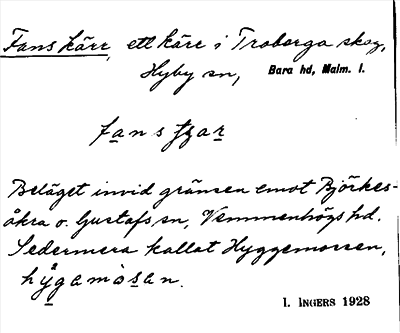 Fans kärr, ett kärr i Troborga skog,
Hyby sn, Bara hd, Malm. l.
fans ʃʒar
Beläget invid gränsen emot Björkes-
åkra o. Gustafs sn, Vemmenhögs hd.
Sedermera kallat Hyggemossen,
hỿ̊gamòsan.
I. INGERS 1928